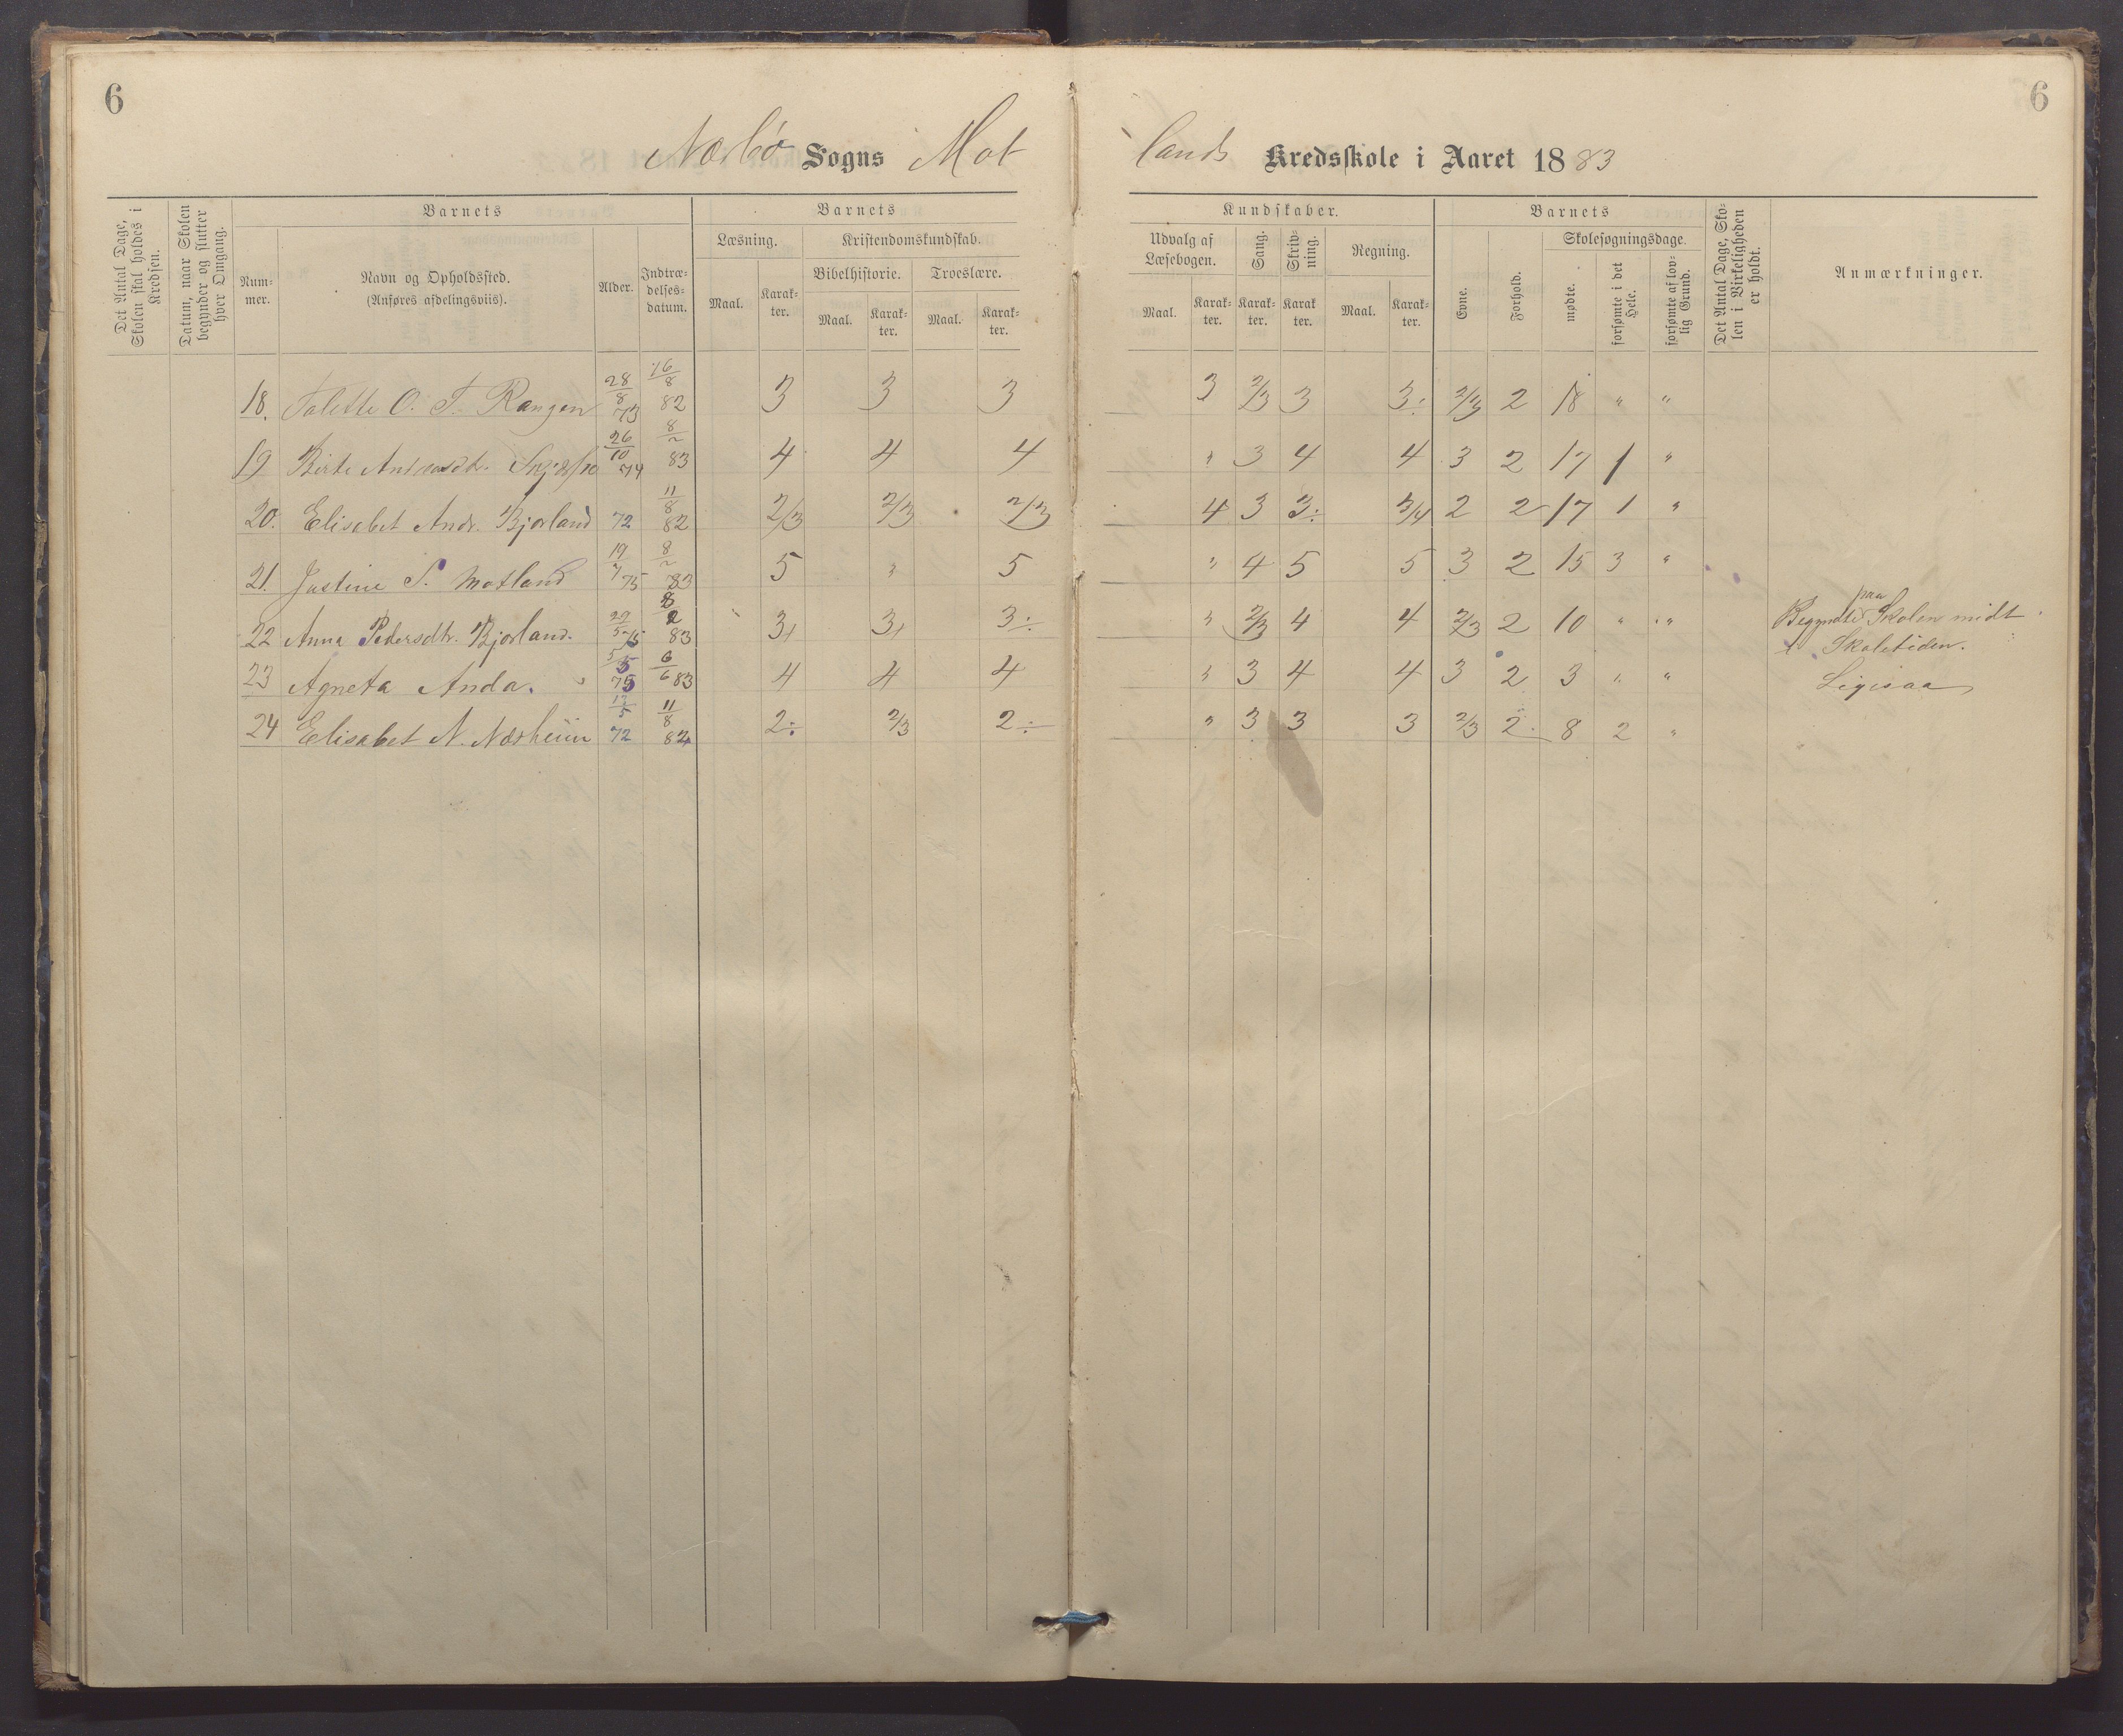 6
6
Nærbø Sogns Mot
lands Kredsskole i Aaret 1883
Det Antal Dage, Skolen skal holdes i Kredsen.
Datum, naar Skolen begynder og slutter hver Omgang.
Barnets
Barnets
Kundskaber.
Barnets
Det Antal Dage, Skolen i Virkeligheden er holdt.
Anmærkninger.
Nummer.
Navn og Opholdssted.
(Anføres afdelingsviis).
Alder.
Indtrædelsesdatum.
Læsning.
Kristendomskundskab.
Bibelhistorie.
Troeslære.
Maal.
Karakter.
Maal.
Karakter.
Maal.
Karakter.
Udvalg af Læsebogen.
Sang.
Skrivning.
Regning.
Maal.
Karakter.
Karakter.
Karakter.
Maal.
Karakter.
Evne.
Forhold.
Skolesøgningsdage.
mødte.
forsømte i det Hele.
forsømte af lovlig Grund.
18. Talette O. T. Rangen 28/8 73 16/8 82 3 3 3 3 2/3 3 3÷ 2/3 2 18 " "
19 Birte Andreasdtr. 26/10 74 8/2 83 4 4 4 " 3 4 4 3 2 17 1 "
20. Elisabet Andr. Bjorland 72 11/8 82 2/3 2/3 2/3 4 3 3÷ 3/4 2 2 17 1 "
21. Justine S. Motland 19/7 75 8/2 83 5 " 5 " 4 5 5 3 2 15 3 "
22 Anna Pedersdtr. Bjorland. 29/5 75 8/2 83 3+ 3+ 3÷ " 2/3 4 4 2/3 2 10 " " Begyndte paa Skolen midt
i Skoletiden.
23 Agneta Anda. 5/5 75 6/6 83 4 4 4 " 3 4 4 3 2 3 " " Ligesaa
24 Elisabet N. Nærheim 12/5 72 11/8 82 2÷ 2/3 2÷ " 3 3 3 2/3 2 8 2 "